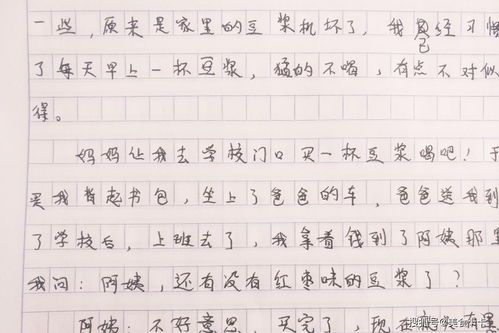 一些，原来是家里的豆浆机坏了，我已经习惯
了每天早上一杯豆浆，猛的不喝，有点不对似
得。
妈妈让我去学校门口买一杯豆浆喝吧！于
是我背起书包，坐上了爸爸的车，爸爸送我到
了学校后，上班去了，我拿着钱到了阿姨那里
我问：阿姨，还有没有红枣味的豆浆了？
阿姨：不好意思，买完了，现在
搜狐号@